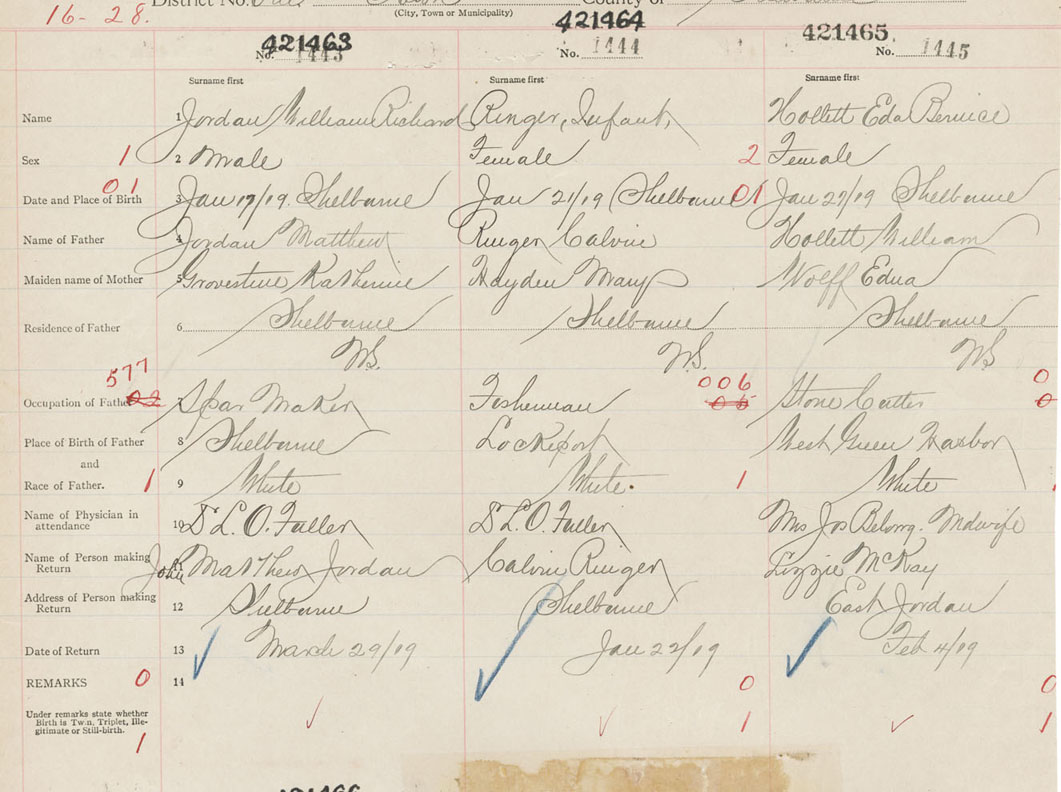 16-28. District No. County of
(City, Town or Municipality)
421463 421464 421465
No. 1443 No. 1444 No. 1445
Surname first Surname first Surname first
Name 1 Jordan William Richard Ringer, Infant, Hollett Edal Bernice
Sex 1 2 Male Female 2 Female
01
Date and Place of Birth 3 Jan 17/19. Shelburne Jan 21/19 Shelburne 01 Jan 27/19 Shelburne
Name of Father 4 Jordan Matthew Ringer Calvin Hollett William
Maiden name of Mother 5 Grovestine Katherine Hayden Mary Wolff Edna
Residence of Father 6 Shelburne Shelburne Shelburne
N.S. N.S. N.S
577 006 0
Occupation of Father 02 7 Spar Maker Fisherman 06 Stone Cutter 0
Place of Birth of Father 8 Shelburne Lockeport West Green Harbor
and
Race of Father. 1 9 White White. 1 White
Name of Physician in
attendance 10 Dr L. O. Fuller Dr L. O. Fuller Mrs Jos Belong. Midwife
Name of Person making
Return 11 John Matthew Jordan Calvin Ringer Lizzie McKay
Address of Person making
Return 12 Shelburne Shelburne East Jordan
Date of Return 13 March 29/19 Jan 22/19 Feb 4/19
REMARKS 0 14 0 0
Under remarks state whether
Birth is Twin, Triplet, Ille-
gitimate or Still-birth. 1 1
1
421466